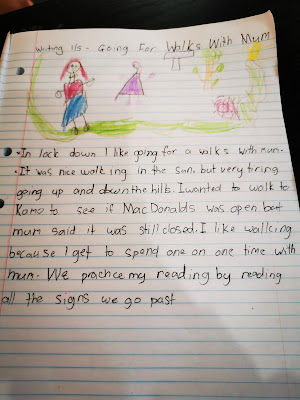 Writing 1/5 - Going For Walks With Mum
• In lock down I like going for a walks with mum.
• It was nice walking in the sun, but very tiring
going up and down the hills. I wanted to walk to
Kamo to see if MacDonalds was open but
mum said it was still closed. I like walking
because I get to spend one on one time with
mum. We practice my reading by reading
all the signs we go past